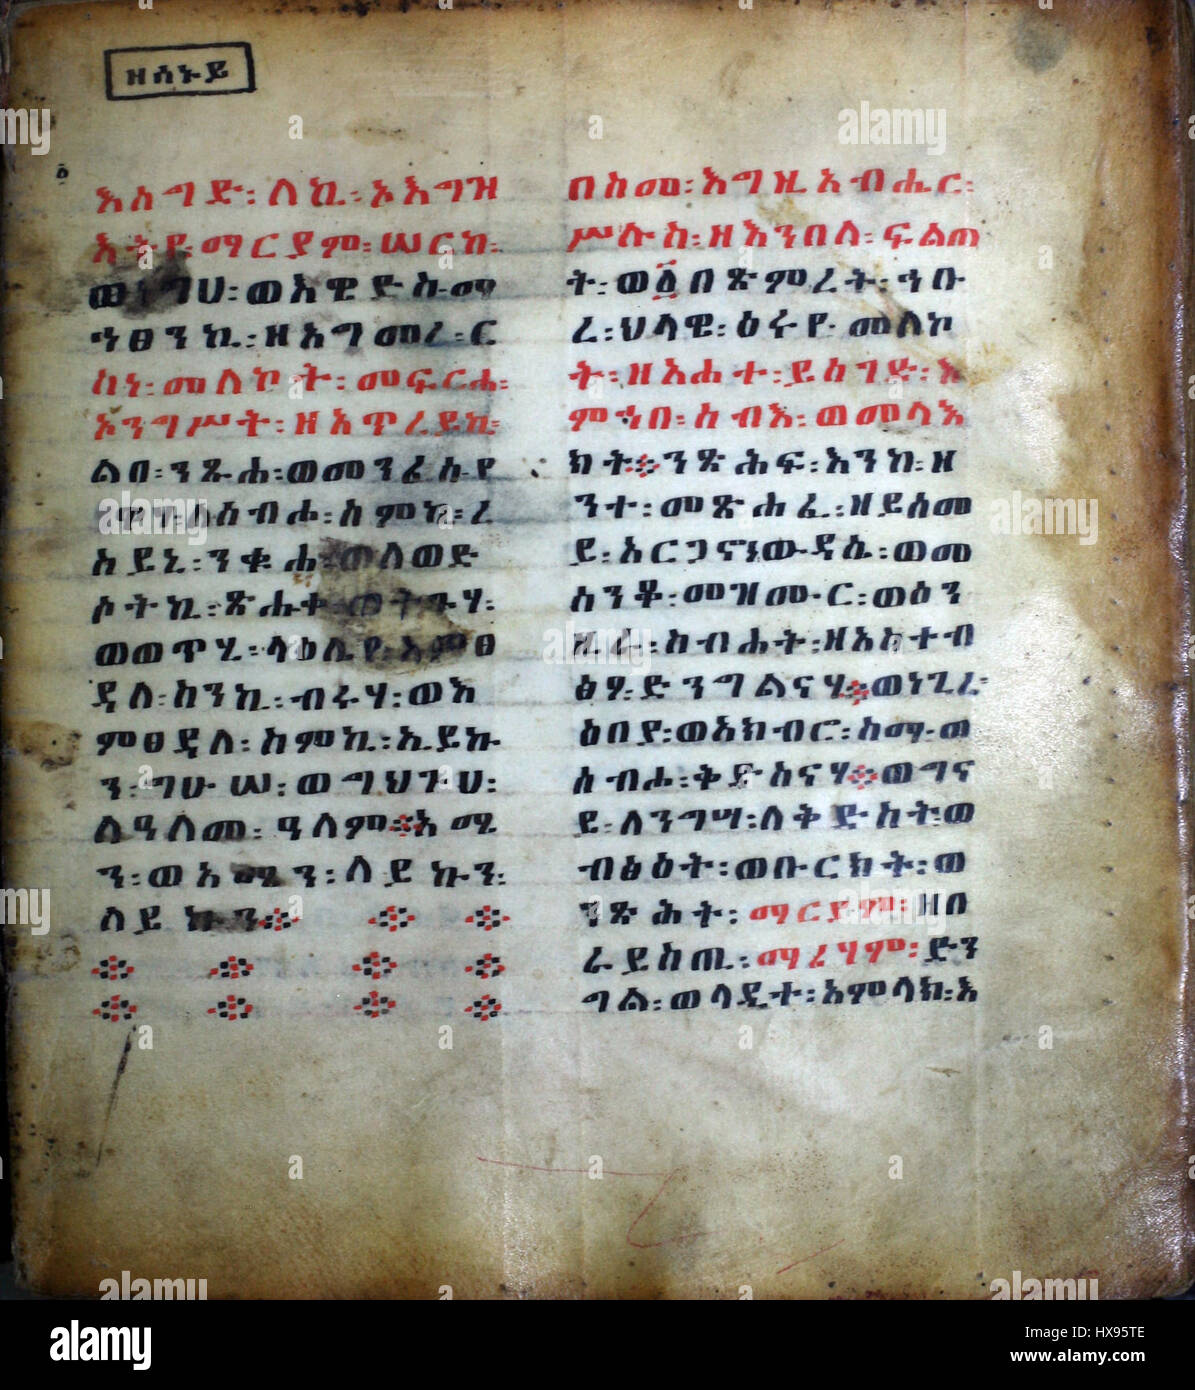 ዘሰኑይ
እሰግድ፡ለኪ፡ኦእግዝ
እትየ፡ማርያም፡ሠርከ፡
ወነግሀ፡ወእዌድስ፡ማ
ኅፀንኪ፡ዘአግመረ፡ር
ስነ፡መለኮት፡መፍርሐ፡
ኦንግሥት፡ዘአጥረይኪ፡
ልበ፡ንጹሐ፡ወመንፈሰ፡የ
ለስብሖ፡ስምኪ፡ረ
ስይኒ፡ንቁሐ፡ወለወድ
ሶትኪ፡ጽሑቀ፡
ወወጥሃ፡ላዕሌየ፡አምፀ
ዲለ፡ከንኪ፡ብሩሃ፡ወእ
ምፀዲለ፡ስምኪ፡ኢይኩ
ን፡ግሁሠ፡ወግህጉሀ፡
ለዓለመ፡ዓለም፨አሜ
ን፡ወአሜን፡ለይኩን፡
ለይኩን፨
በስመ፡እግዚአብሔር፡
ሥሉስ፡ዘእንበለ፡ፍልጠ
ት፡ወ፩በጽምረት፡ኅቡ
ረ፡ህላዌ፡ዕሩየ፡መለኮ
ት፡ዘአሐተ፡ይሰገድ፡እ
ምኀበ፡ሰብእ፡ወመላእ
ክት፨ንጽሕፍ፡እንከ፡ዘ
ንተ፡መጽሐፈ፡ዘይሰመ
ይ፡አርጋኖነ፡ውዳሴ፡ወመ
ሰንቆ፡መዝሙር፡ወዕን
ዚራ፡ስብሐት፡ዘአስተብ
ፅዖ፡ድንግልናሃ፨ወነጊረ፡
ዕበያ፡ወአክብሮ፡ስማ፡ወ
ሰብሖ፡ቅድስናሃ፨ወግና
ይ፡ለንግሣ፡ለቅድስት፡ወ
ብፅዕት፡ወቡርክት፡ወ
ንጽሕት፡ማርያም፡ዘበ
ራይስጢ፡ማሪሃም፡ድን
ግል፡ወላዲተ፡አምላክ፡እ
alamy
Image ID: HX95TE
www.alamy.com